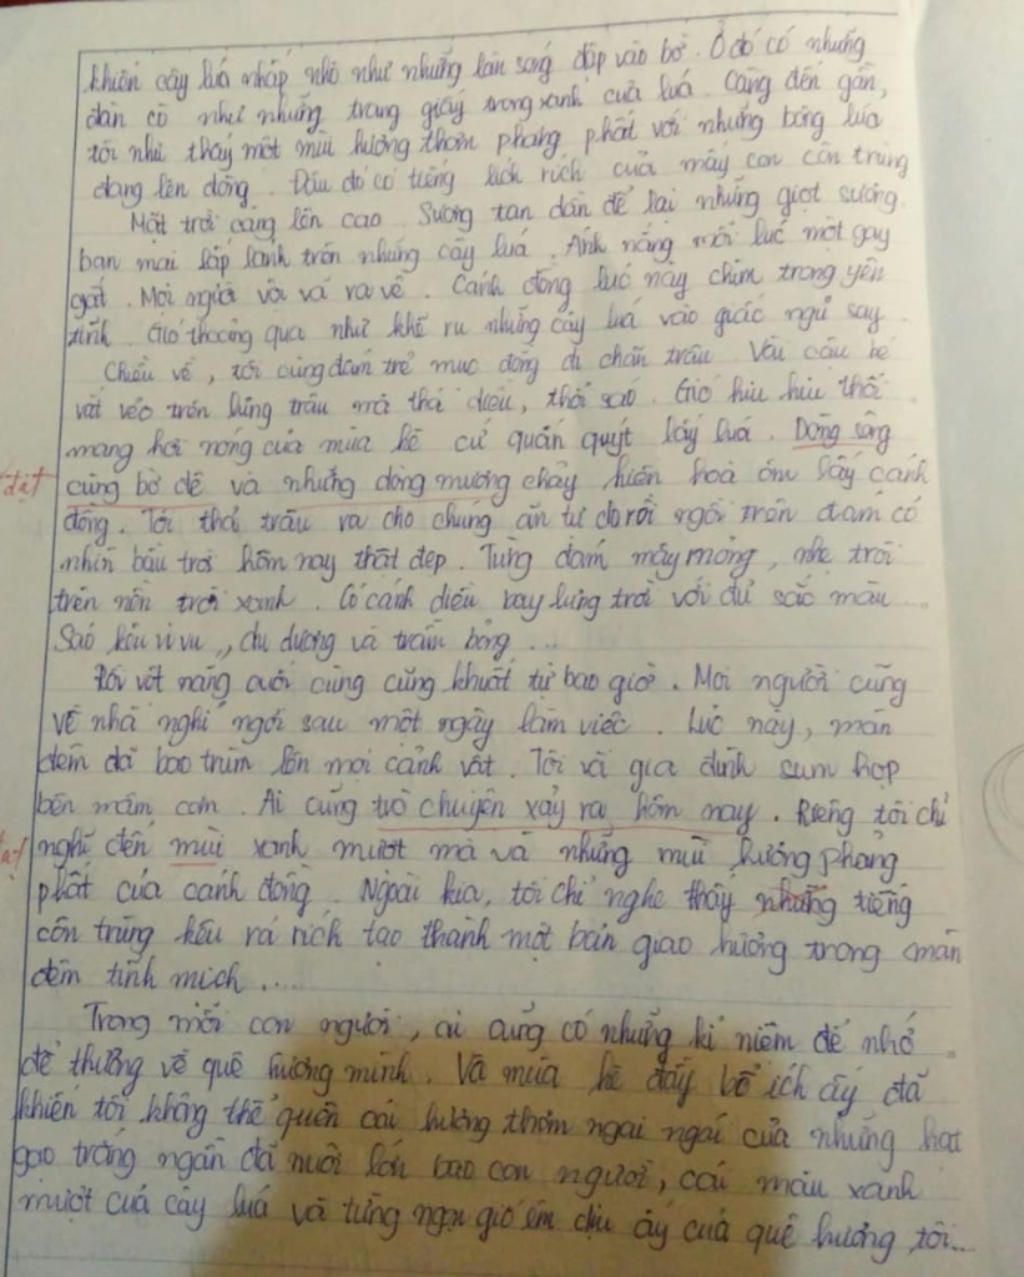 khiến cây lúa nhấp nhô như những làn sóng đập vào bờ. Ở đó có những
đàn cò như những trang giấy trong xanh của lúa. Càng đến gần,
tôi như thấy một mùi hương thơm phang phất với những bông lúa
đang lên đòng. Đâu đó có tiếng lích rích của mấy con côn trùng
Mặt trời càng lên cao. Sương tan dần để lại những giọt sương
ban mai lấp lánh trên những cây lúa. Ánh nắng mỗi lúc một gay
gắt. Mọi người vội vã ra về. Cánh đồng lúc này chìm trong yên
tĩnh. Gió thoảng qua như khẽ ru những cây lúa vào giấc ngủ say.
Chiều về, tôi cùng đám trẻ mục đồng đi chăn trâu. Vài cậu bé
vắt vẻo trên lưng trâu mà thả diều, thổi sáo. Gió hiu hiu thổi
mang hơi nóng của mùa hè cứ quấn quýt lấy lúa. Dòng sông
đạt cùng bờ đê và những dòng mương chảy hiền hoà ôm lấy cánh
đồng. Tôi thả trâu ra cho chúng ăn tự do rồi ngồi trên đám cỏ
nhìn bầu trời hôm nay thật đẹp. Từng đám mây mỏng, nhẹ trôi
trên nền trời xanh. Có cánh diều bay lưng trời với đủ sắc màu...
Sáo kêu vi vu, du dương và trầm bổng...
Rồi vệt nắng cuối cùng cũng khuất tự bao giờ. Mọi người cũng
về nhà nghỉ ngơi sau một ngày làm việc. Lúc này, màn
đêm đã bao trùm lên mọi cảnh vật. Tôi và gia đình sum họp
bên mâm cơm. Ai cũng trò chuyện xảy ra hôm nay. Riêng tôi chỉ
nghĩ đến mùi xanh mướt mà và những mùi hương phang
phất của cánh đồng. Ngoài kia, tôi chỉ nghe thấy những tiếng
côn trùng kêu rả rích tạo thành một bản giao hưởng trong màn
đêm tĩnh mịch....
Trong mỗi con người, ai cũng có những kỉ niệm để nhớ
để thương về quê hương mình. Và mùa hè đầy bổ ích ấy đã
khiến tôi không thể quên cái hương thơm ngai ngái của những hạt
gạo trắng ngần đã nuôi lớn bao con người, cái màu xanh
mượt của cây lúa và từng ngọn gió êm dịu ấy của quê hương tôi...